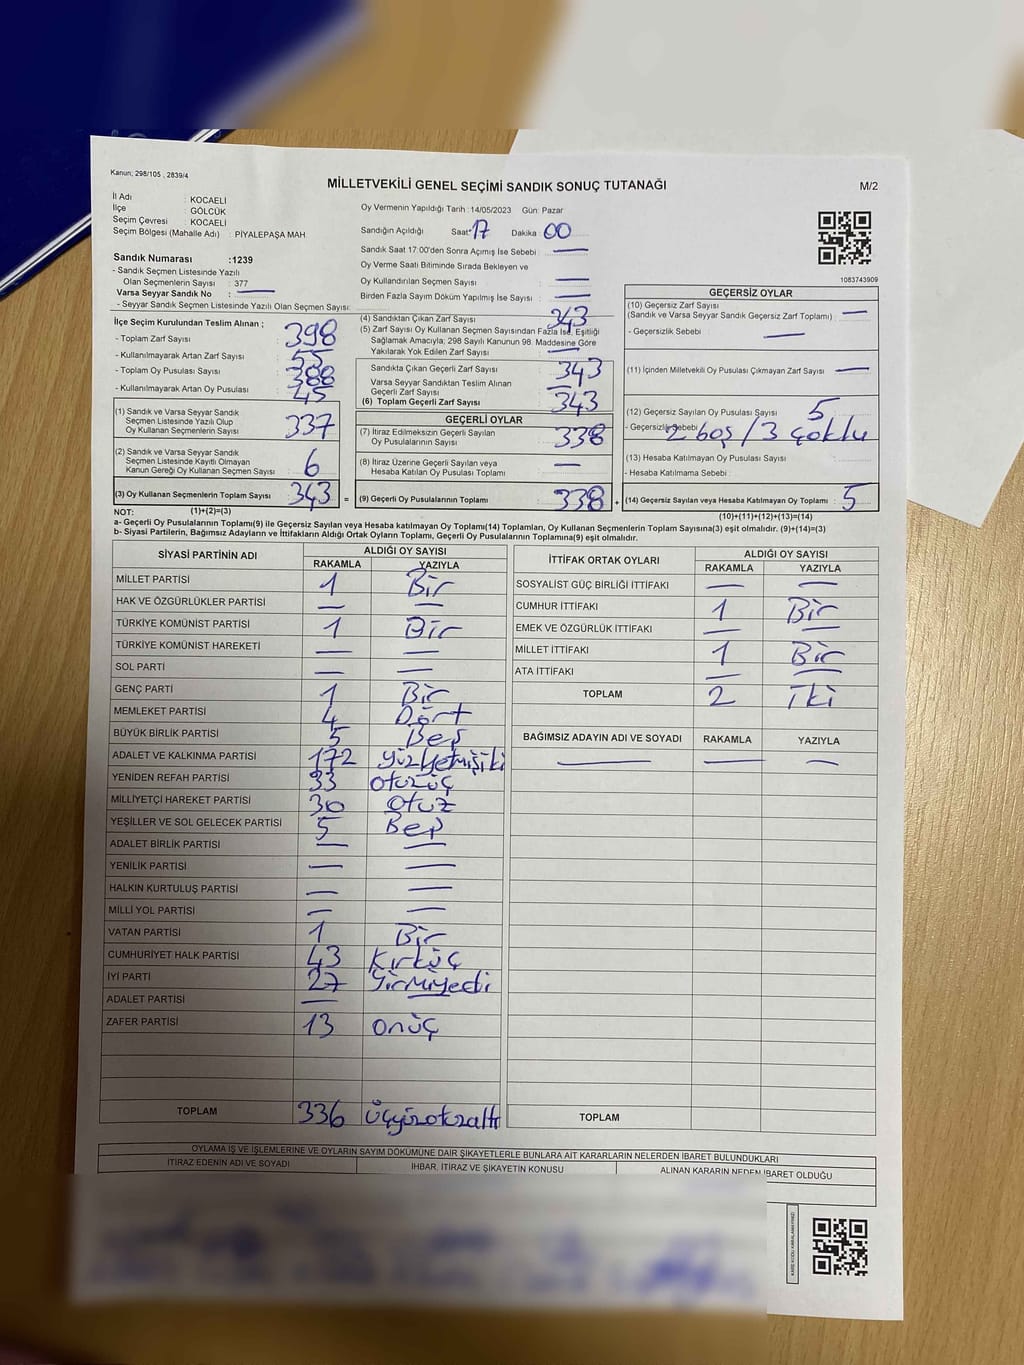 Kanun; 298/105 , 2839/4
MİLLETVEKİLİ GENEL SEÇİMİ SANDIK SONUÇ TUTANAĞI
M/2
İl Adı : KOCAELİ
İlçe : GÖLCÜK
Seçim Çevresi : KOCAELİ
Seçim Bölgesi (Mahalle Adı) : PİYALEPAŞA MAH
Oy Vermenin Yapıldığı Tarih :14/05/2023 Gün: Pazar
Sandığın Açıldığı Saat 17 Dakika 00
Sandık Saat 17:00'den Sonra Açımış İse Sebebi : —
Oy Verme Saati Bitiminde Sırada Bekleyen ve
Oy Kullandırılan Seçmen Sayısı : —
Birden Fazla Sayım Döküm Yapılmış İse Sayısı : —
Sandık Numarası :1239
- Sandık Seçmen Listesinde Yazılı
Olan Seçmenlerin Sayısı : 377
Varsa Seyyar Sandık No : —
- Seyyar Sandık Seçmen Listesinde Yazılı Olan Seçmen Sayısı:
İlçe Seçim Kurulundan Teslim Alınan ;
- Toplam Zarf Sayısı : 398
- Kullanılmayarak Artan Zarf Sayısı : 55
- Toplam Oy Pusulası Sayısı : 388
- Kullanılmayarak Artan Oy Pusulası : 45
(1) Sandık ve Varsa Seyyar Sandık
Seçmen Listesinde Yazılı Olup
Oy Kullanan Seçmenlerin Sayısı : 337
(2) Sandık ve Varsa Seyyar Sandık
Seçmen Listesinde Kayıtlı Olmayan
Kanun Gereği Oy Kullanan Seçmen Sayısı : 6
(3) Oy Kullanan Seçmenlerin Toplam Sayısı : 343
(4) Sandıktan Çıkan Zarf Sayısı : 343
(5) Zarf Sayısı Oy Kullanan Seçmen Sayısından Fazla İse, Eşitliği
Sağlamak Amacıyla; 298 Sayılı Kanunun 98. Maddesine Göre
Yakılarak Yok Edilen Zarf Sayısı : —
Sandıkta Çıkan Geçerli Zarf Sayısı : 343
Varsa Seyyar Sandıktan Teslim Alınan
Geçerli Zarf Sayısı : —
(6) Toplam Geçerli Zarf Sayısı : 343
GEÇERLİ OYLAR
(7) İtiraz Edilmeksizin Geçerli Sayılan
Oy Pusulalarının Sayısı : 338
(8) İtiraz Üzerine Geçerli Sayılan veya
Hesaba Katılan Oy Pusulası Toplamı : —
= (9) Geçerli Oy Pusulalarının Toplamı : 338
1083743909
GEÇERSİZ OYLAR
(10) Geçersiz Zarf Sayısı
(Sandık ve Varsa Seyyar Sandık Geçersiz Zarf Toplamı) : —
- Geçersizlik Sebebi : —
(11) İçinden Milletvekili Oy Pusulası Çıkmayan Zarf Sayısı : —
(12) Geçersiz Sayılan Oy Pusulası Sayısı : 5
- Geçersizlik Sebebi : 2 boş / 3 çoklu
(13) Hesaba Katılmayan Oy Pusulası Sayısı :
- Hesaba Katılmama Sebebi :
+ (14) Geçersiz Sayılan veya Hesaba Katılmayan Oy Toplamı : 5
NOT: (1)+(2)=(3)
(10)+(11)+(12)+(13)=(14)
a- Geçerli Oy Pusulalarının Toplamı(9) ile Geçersiz Sayılan veya Hesaba katılmayan Oy Toplamı(14) Toplamları, Oy Kullanan Seçmenlerin Toplam Sayısına(3) eşit olmalıdır. (9)+(14)=(3)
b- Siyasi Partilerin, Bağımsız Adayların ve İttifakların Aldığı Ortak Oyların Toplamı, Geçerli Oy Pusulalarının Toplamına(9) eşit olmalıdır.
SİYASİ PARTİNİN ADI ALDIĞI OY SAYISI
RAKAMLA YAZIYLA
MİLLET PARTİSİ 1 Bir
HAK VE ÖZGÜRLÜKLER PARTİSİ — —
TÜRKİYE KOMÜNİST PARTİSİ 1 Bir
TÜRKİYE KOMÜNİST HAREKETİ — —
SOL PARTİ — —
GENÇ PARTİ 1 Bir
MEMLEKET PARTİSİ 4 Dört
BÜYÜK BİRLİK PARTİSİ 5 Beş
ADALET VE KALKINMA PARTİSİ 172 yüzyetmişiki
YENİDEN REFAH PARTİSİ 33 otuzüç
MİLLİYETÇİ HAREKET PARTİSİ 30 otuz
YEŞİLLER VE SOL GELECEK PARTİSİ 5 Beş
ADALET BİRLİK PARTİSİ — —
YENİLİK PARTİSİ — —
HALKIN KURTULUŞ PARTİSİ — —
MİLLİ YOL PARTİSİ — —
VATAN PARTİSİ 1 Bir
CUMHURİYET HALK PARTİSİ 43 Kırküç
İYİ PARTİ 27 Yirmiyedi
ADALET PARTİSİ — —
ZAFER PARTİSİ 13 onüç
TOPLAM 336 üçyüzotuzaltı
İTTİFAK ORTAK OYLARI ALDIĞI OY SAYISI
RAKAMLA YAZIYLA
SOSYALİST GÜÇ BİRLİĞİ İTTİFAKI — —
CUMHUR İTTİFAKI 1 Bir
EMEK VE ÖZGÜRLÜK İTTİFAKI — —
MİLLET İTTİFAKI 1 Bir
ATA İTTİFAKI — —
TOPLAM 2 İki
BAĞIMSIZ ADAYIN ADI VE SOYADI RAKAMLA YAZIYLA
— — —
TOPLAM
OYLAMA İŞ VE İŞLEMLERİNE VE OYLARIN SAYIM DÖKÜMÜNE DAİR ŞİKAYETLERLE BUNLARA AİT KARARLARIN NELERDEN İBARET BULUNDUKLARI
İTİRAZ EDENİN ADI VE SOYADI İHBAR, İTİRAZ VE ŞİKAYETİN KONUSU ALINAN KARARIN NEDEN İBARET OLDUĞU